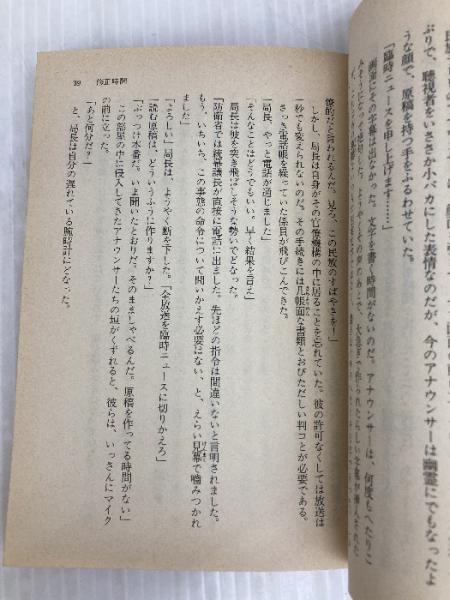 ぷりで、聴視者をいささか小バカにした表情なのだが、今のアナウンサーは幽霊にでもなったよ
うな顔で、原稿を持つ手をふるわせていた。
「臨時ニュースを申し上げます……」
画面にその字幕は出なかった。文字を書く時間がないのだ。アナウンサーは、何度もへたりこ
39 修正時間
僚的だと言われるんだ。見ろ、この民族のすばやさを！」
しかし、局長は自身がその官僚機構の中に居ることを忘れていた。彼の許可なくしては放送は
一秒でも変えられないのだ。その手続きには几帳面な書類とおびただしい判コとが必要である。
さっき電話帳を繰っていた係員が飛びこんできた。
「局長、やっと電話が通じました」
「そんなことはどうでもいい。早く結果を言え」
局長は彼を突き飛ばしそうな勢いでどなった。
「防衛省では統幕議長が直接に電話に出ました。先ほどの指令は間違いないと言明されました。
もう、いちいち、この事態の命令について聞いかえす必要はない、と、えらい見幕で噛みつかれ
ました」
「よろしい」局長は、ようやく断を下した。「全放送を臨時ニュースに切りかえろ」
「読む原稿は、どういうふうに作りますか？」
「ぶっつけ本番だ。いま聞いたとおりだ。そのまましゃべるんだ。原稿を作ってる時間がない」
この部屋の中に侵入してきたアナウンサーたちの垣がくずれると、彼らは、いっさんにマイク
の前に立った。
「あと何分だ？」
と、局長は自分の遅れている腕時計にどなった。